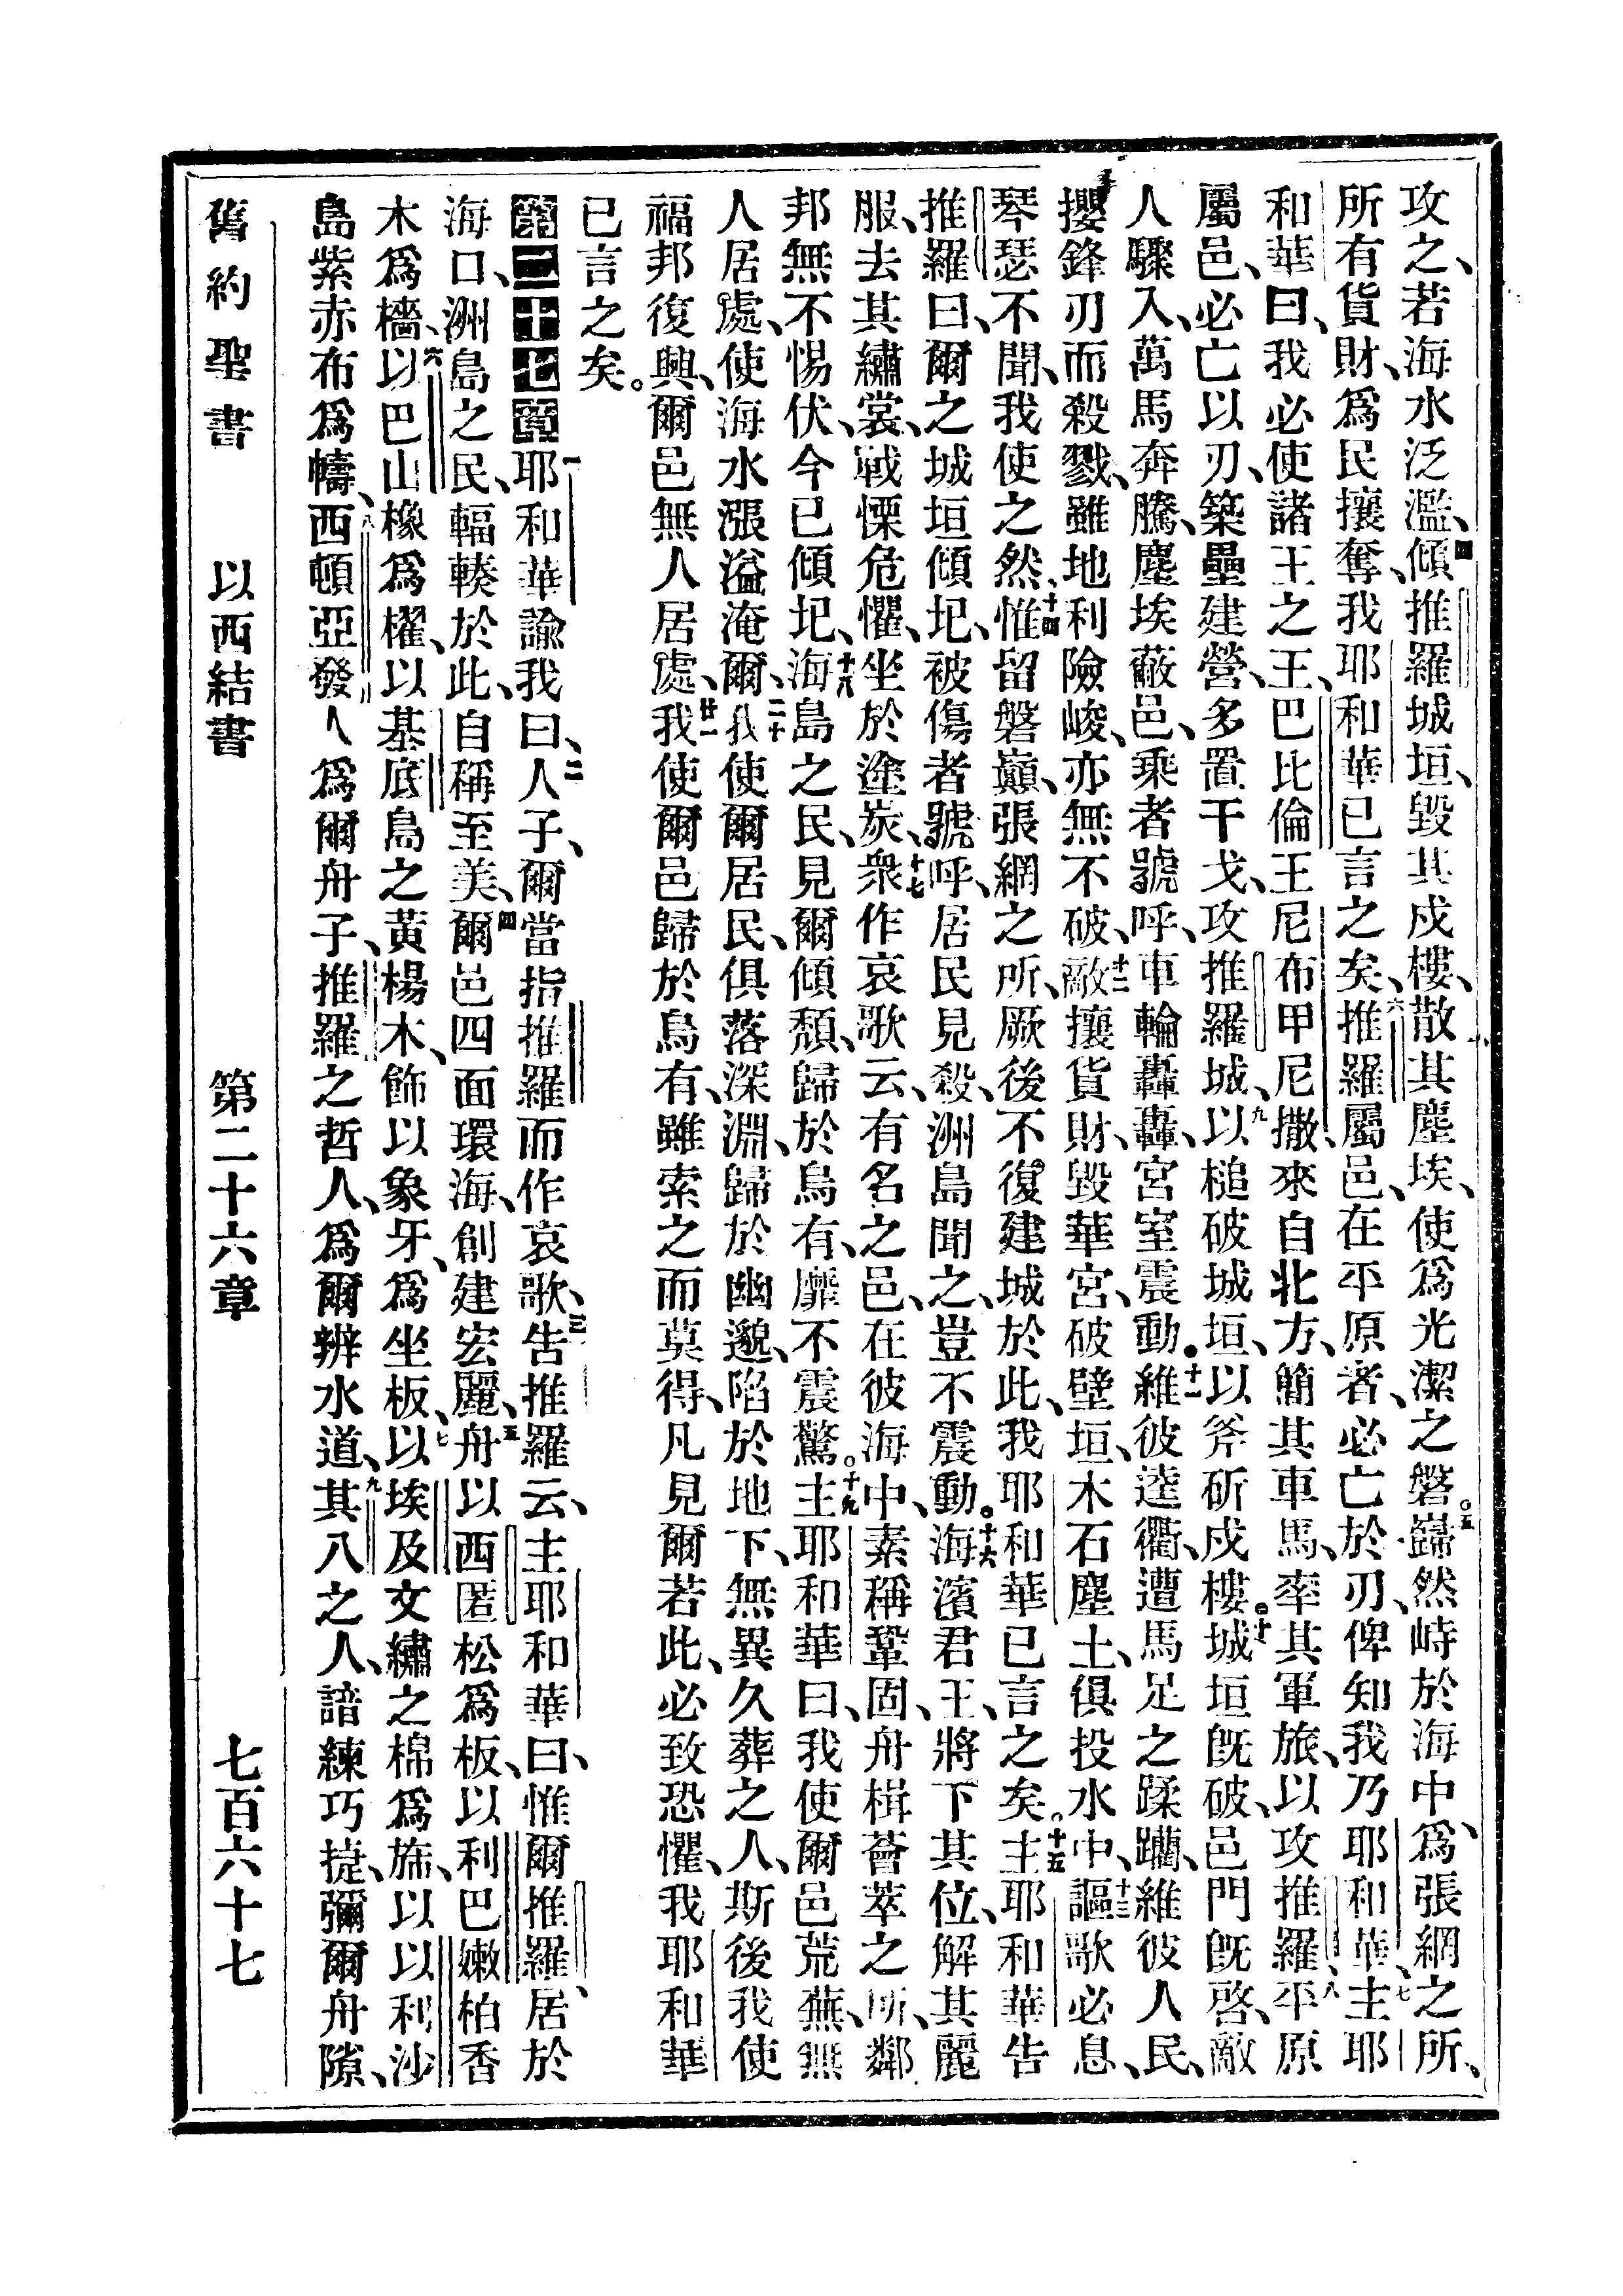 攻之、若海水泛濫、四傾推羅城垣、毀其戍樓、散其塵埃、使爲光潔之磐。五巋然峙於海中、爲張網之所、
所有貨財、爲民攘奪、我耶和華已言之矣、六推羅屬邑、在平原者、必亡於刃、俾知我乃耶和華、七主耶
和華曰、我必使諸王之王、巴比倫王尼布甲尼撒、來自北方、簡其車馬、率其軍旅、以攻推羅、八平原
屬邑、必亡以刃、築壘建營、多置干戈、攻推羅城、九以槌破城垣、以斧斫戍樓。十城垣旣破、邑門旣啓、敵
人驟入、萬馬奔騰、塵埃蔽邑、乘者號呼、車輪轟轟、宮室震動。十一維彼逵衢、遭馬足之蹂躪、維彼人民、
攖鋒刃而殺戮、雖地利險峻、亦無不破、十二敵攘貨財、毀華宮、破壁垣、木石塵土、俱投水中、十三謳歌必息、
琴瑟不聞、我使之然、十四惟留磐巔、張網之所、厥後不復建城於此、我耶和華已言之矣。十五主耶和華告
推羅曰、爾之城垣傾圮、被傷者號呼、居民見殺、洲島聞之、豈不震動。十六海濱君王、將下其位、解其麗
服、去其繡裳、戰慄危懼、坐於塗炭、十七衆作哀歌云、有名之邑、在彼海中、素稱鞏固、舟楫薈萃之所、鄰
邦無不惕伏、今已傾圮、十八海島之民、見爾傾頹、歸於烏有、靡不震驚。十九主耶和華曰、我使爾邑荒蕪、無
人居處、使海水漲溢淹爾、二十我使爾居民、俱落深淵、歸於幽邈、陷於地下、無異久葬之人、斯後我使
福邦復興、爾邑無人居處、廿一我使爾邑歸於烏有、雖索之而莫得、凡見爾若此、必致恐懼、我耶和華
已言之矣。
第二十七章一耶和華諭我曰、二人子、爾當指推羅而作哀歌、三告推羅云、主耶和華曰、惟爾推羅、居於
海口、洲島之民、輻輳於此、自稱至美、四爾邑四面環海、創建宏麗、五舟以西匿松爲板、以利巴嫩柏香
木爲檣、六以巴山橡爲櫂、以基底島之黃楊木、飾以象牙、爲坐板、七以埃及文繡之棉爲旆、以以利沙
島紫赤布爲幬、八西頓亞發人爲爾舟子、推羅之哲人、爲爾辨水道、九其八之人、諳練巧捷、彌爾舟隙、
舊約聖書 以西結書 第二十六章 七百六十七